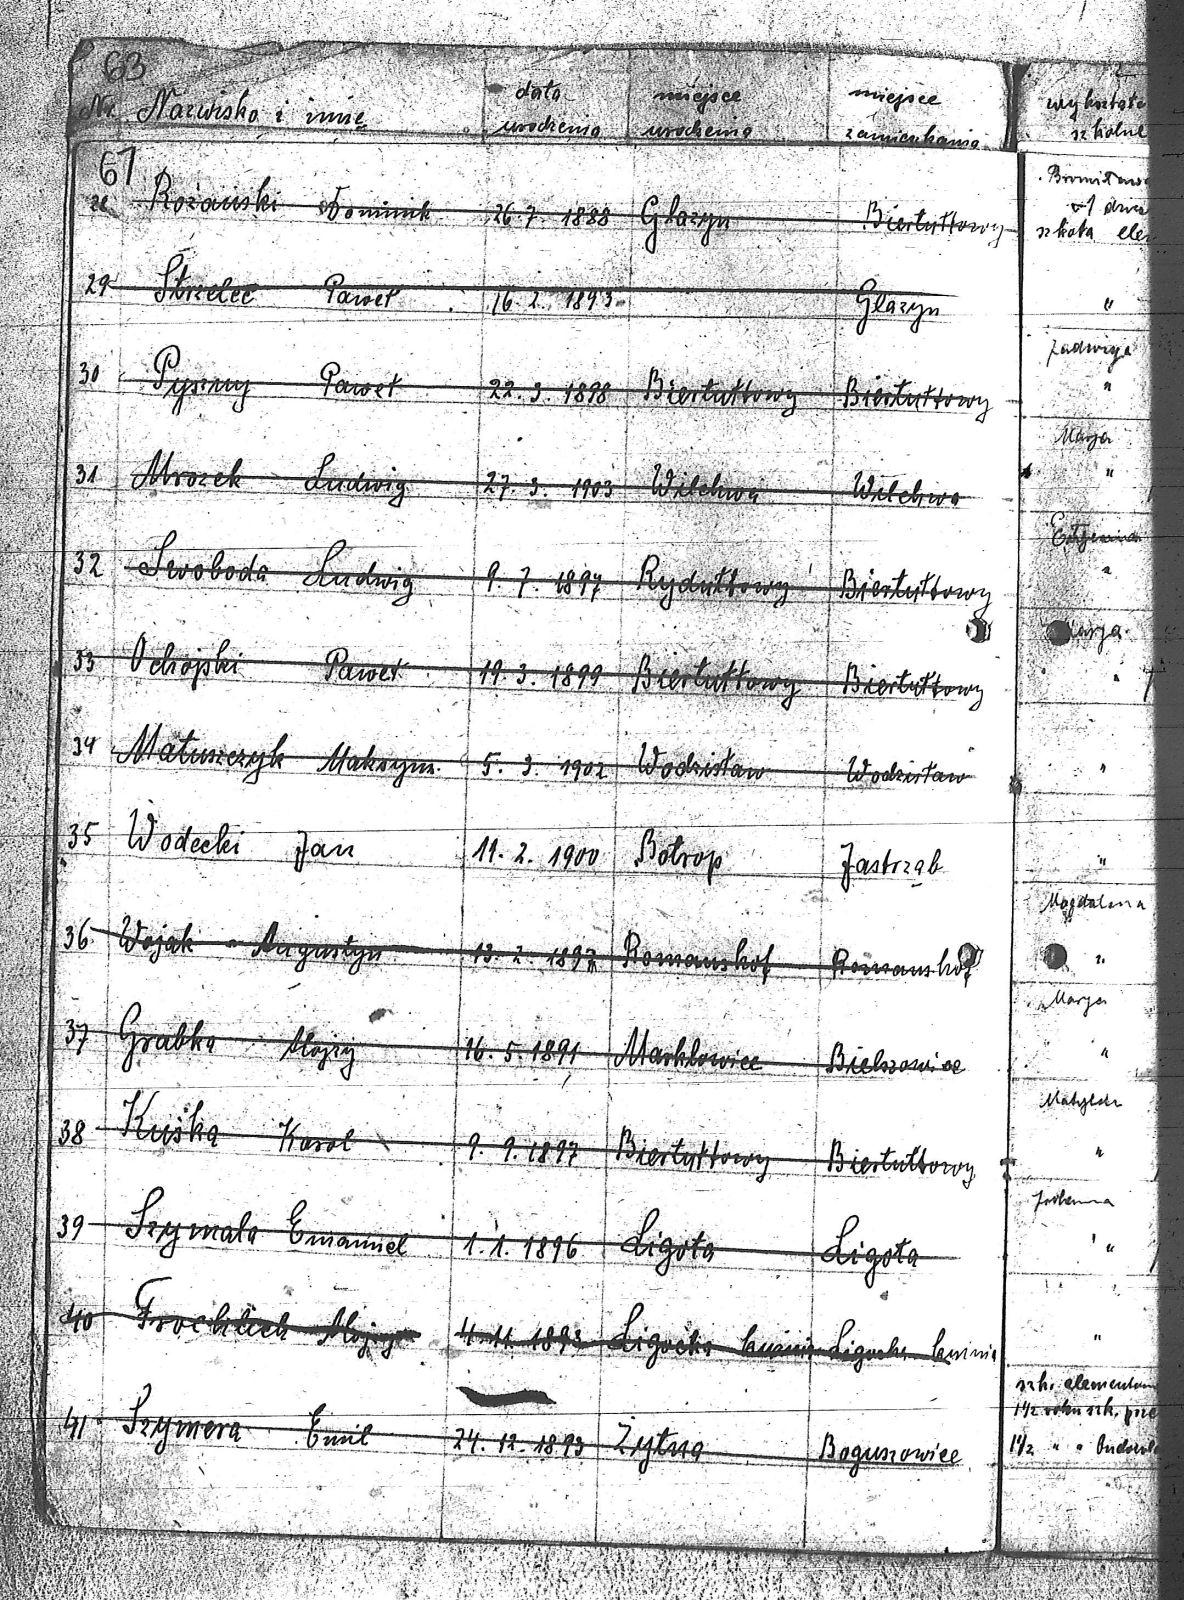 63
Nr. Nazwisko i imię data urodzenia miejsce urodzenia miejsce zamieszkania wykształc szkolne
67
28 Rożański Dominik 26. 7. 1888 Głazyn Biertułtowy
szkoła ele
29 Strzelec Paweł 16. 2. 1893 Głazyn "
Jadwiga
30 Pyszny Paweł 22. 3. 1898 Biertułtowy Biertułtowy "
Marja
31 Mrozek Ludwig 27. 3. 1903 Wilchwa Wilchwa "
32 Swoboda Ludwig 9. 7. 1897 Rydułtowy Biertułtowy "
Marja
33 Ochojski Paweł 19. 3. 1899 Biertułtowy Biertułtowy "
34 Matuszczyk Maksym. 5. 3. 1902 Wodzisław Wodzisław "
35 Wodecki Jan 11. 2. 1900 Botrop Jastrząb "
Magdalena
36 Wojak Augustyn 13. 2. 1897 Romanshof Romanshof "
Marja
37 Grabka Alojzy 16. 5. 1891 Marklowice Bielszowice "
Matylda
38 Kuśka Karol 9. 9. 1897 Biertułtowy Biertułtowy "
39 Szymala Emanuel 1. 1. 1896 Ligota Ligota "
40 Frochlich Alojzy 4. 11. 1893 Ligocka kuźnia Ligocka kuźnia "
szk. elementarn
1½ roku szk. prze
41 Szymera Emil 24. 12. 1893 Żytna Boguszowice 1½ " "